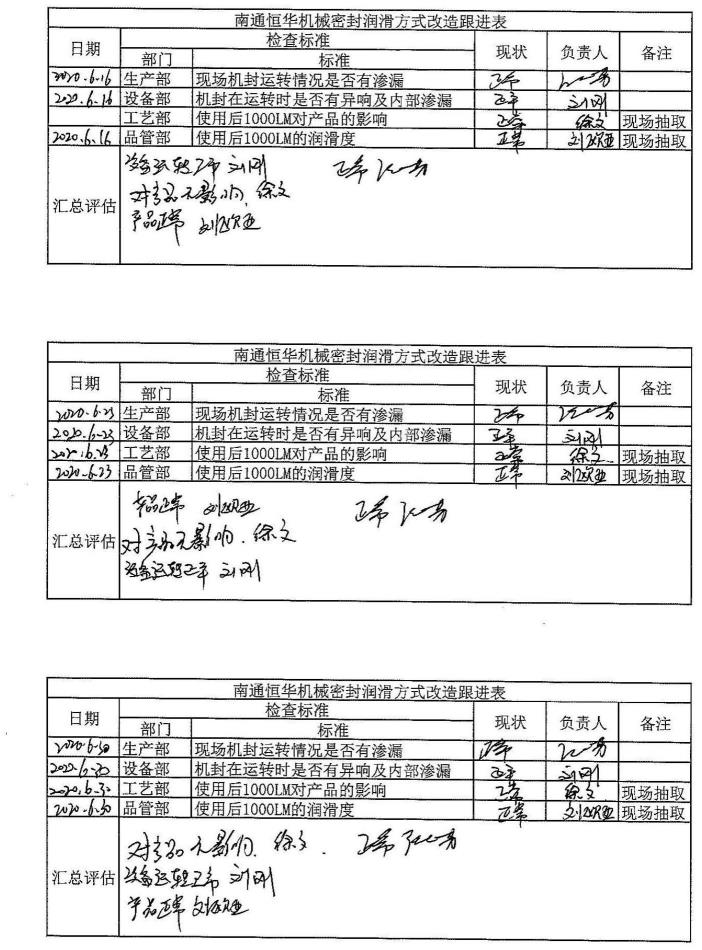 南通恒华机械密封润滑方式改造跟进表
日期 检查标准 现状 负责人 备注
部门 标准
2020.6.16 生产部 现场机封运转情况是否有渗漏 正常
2020.6.16 设备部 机封在运转时是否有异响及内部渗漏 正常 刘刚
工艺部 使用后1000LM对产品的影响 正常 徐文 现场抽取
2020.6.16 品管部 使用后1000LM的润滑度 正常 刘欧亚 现场抽取
汇总评估
设备运转正常 刘刚 正常
对产品无影响. 徐文
产品正常 刘欧亚
南通恒华机械密封润滑方式改造跟进表
日期 检查标准 现状 负责人 备注
部门 标准
2020.6.23 生产部 现场机封运转情况是否有渗漏 正常
2020.6.23 设备部 机封在运转时是否有异响及内部渗漏 正常 刘刚
2020.6.23 工艺部 使用后1000LM对产品的影响 正常 徐文 现场抽取
2020.6.23 品管部 使用后1000LM的润滑度 正常 刘欧亚 现场抽取
汇总评估
产品正常 刘欧亚 正常
对产品无影响. 徐文
设备运转正常 刘刚
南通恒华机械密封润滑方式改造跟进表
日期 检查标准 现状 负责人 备注
部门 标准
2020.6.30 生产部 现场机封运转情况是否有渗漏 正常
2020.6.30 设备部 机封在运转时是否有异响及内部渗漏 正常 刘刚
2020.6.30 工艺部 使用后1000LM对产品的影响 正常 徐文 现场抽取
2020.6.30 品管部 使用后1000LM的润滑度 正常 刘欧亚 现场抽取
汇总评估
对产品无影响. 徐文. 正常
设备运转正常 刘刚
产品正常 刘欧亚